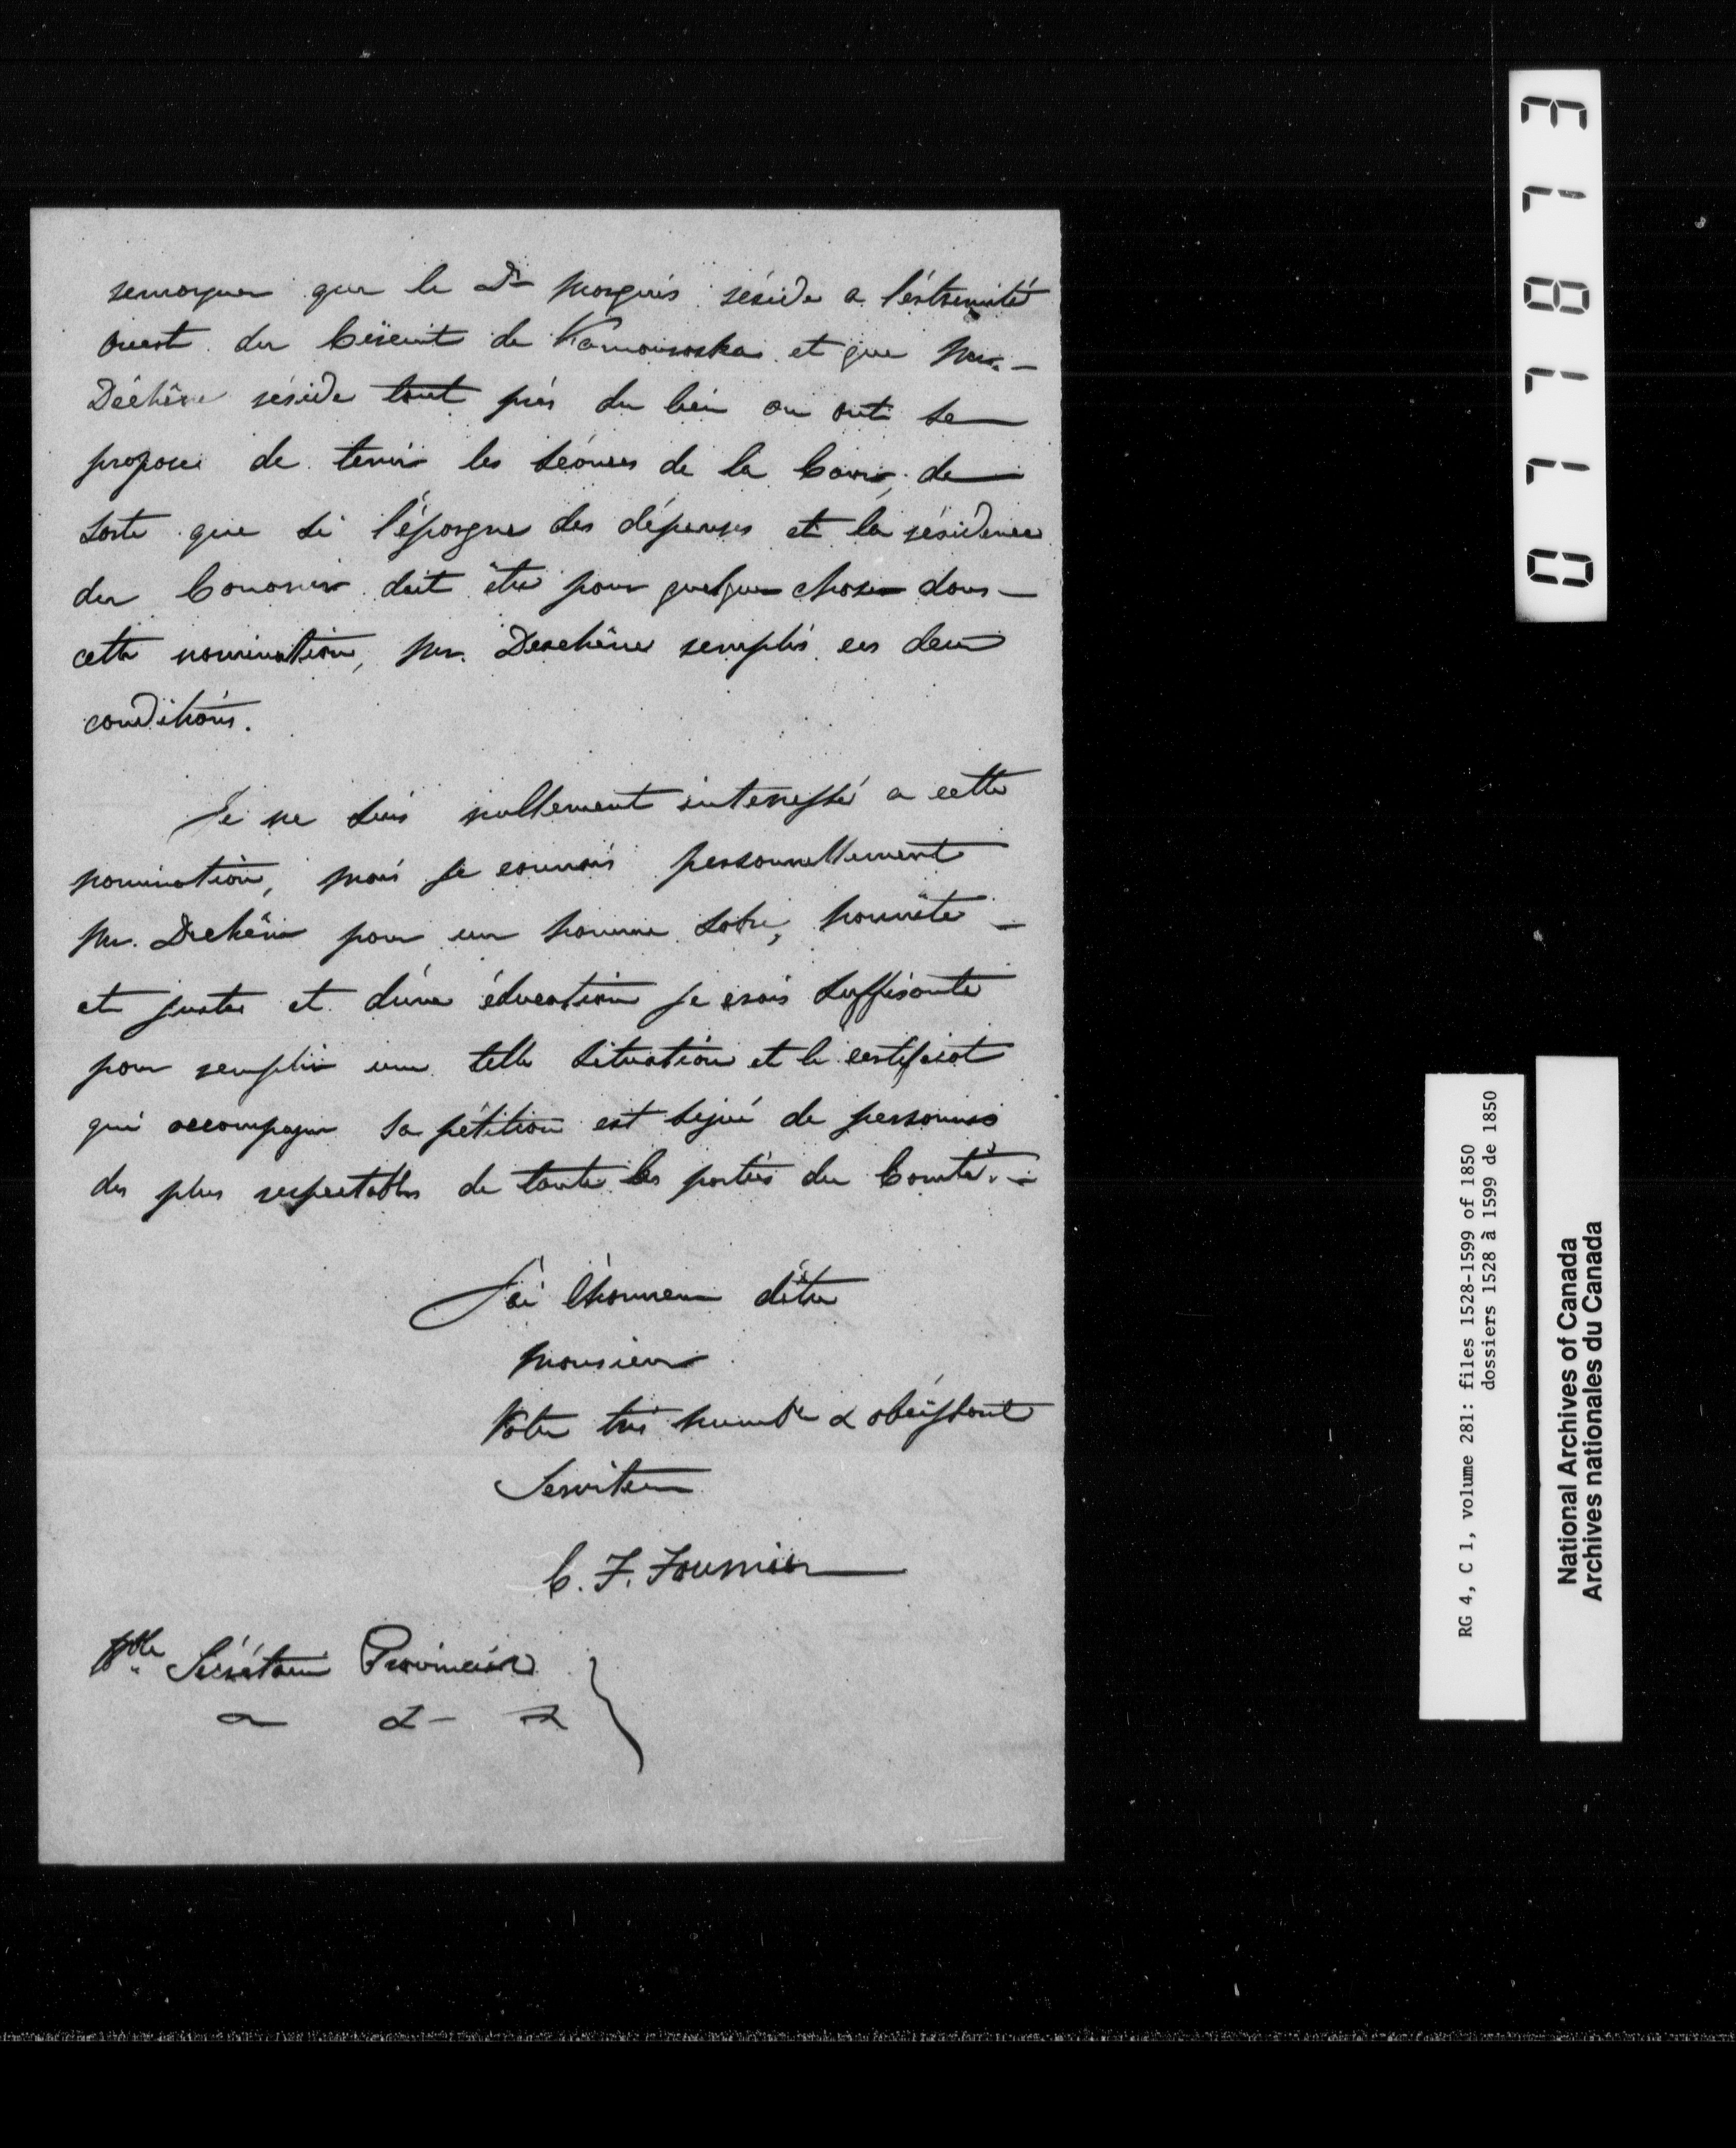 remarquer que le Dr Marquis réside a l'éxtremité
ouest du Circuit de Kamouraska et que Mr. –
Déchêne réside tout près du lieu ou ont se
propose de tenir les séances de la Cour, de
sorte que si l'épargne des dépenses et la résidence
du Coroner doit être pour quelque chose dans –
cette nomination, Mr. Dechêne remplis ces deux
conditions.
Je ne suis nullement interessé a cette
nomination, mais je connais personnellement
Mr. Dechêne pour un homme sobre, honnête –
et juste et d'une éducation je crois suffisante
pour remplir une telle situation et le certificat
qui accompagne sa pétition est signé de personnes
des plus respectables de toute les parties du Comté. –
J'ai l'honneur d'être
Monsieur
Votre très humble & obéissant
Serviteur
C. F. Fournier
Hble Sécrétaire Provincial
a & &
077873
RG 4, C 1, volume 281: files 1528-1599 of 1850
dossiers 1528 à 1599 de 1850
National Archives of Canada
Archives nationales du Canada